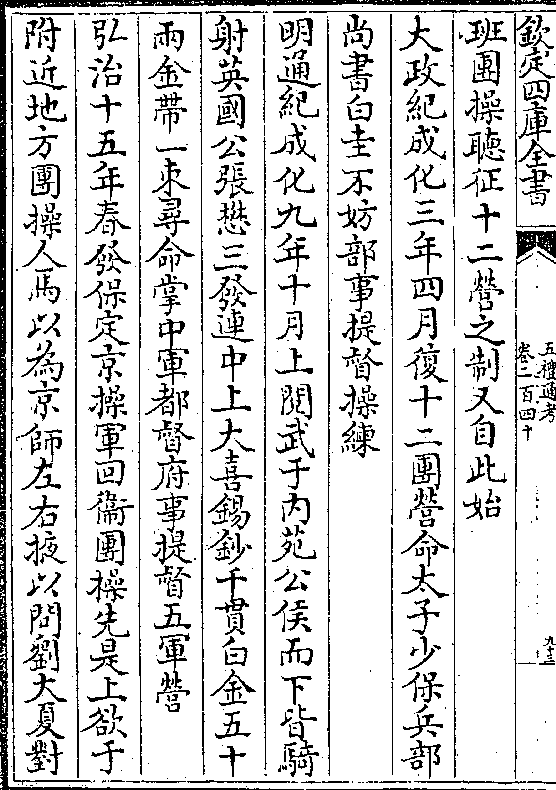 欽定四庫全書
五禮通考
卷二百四十
九十三
班團操聽征十二營之制又自此始
大政紀成化三年四月復十二團營命太子少保兵部
尚書白圭不妨部事提督操練
明通紀成化九年十月上閲武于内苑公侯而下皆騎
射英國公張懋三發連中上大喜錫鈔千貫白金五十
兩金帶一束尋命掌中軍都督府事提督五軍營
弘治十五年春發保定京操軍回衞團操先是上欲于
附近地方團操人馬以為京師左右掖以問劉大夏對